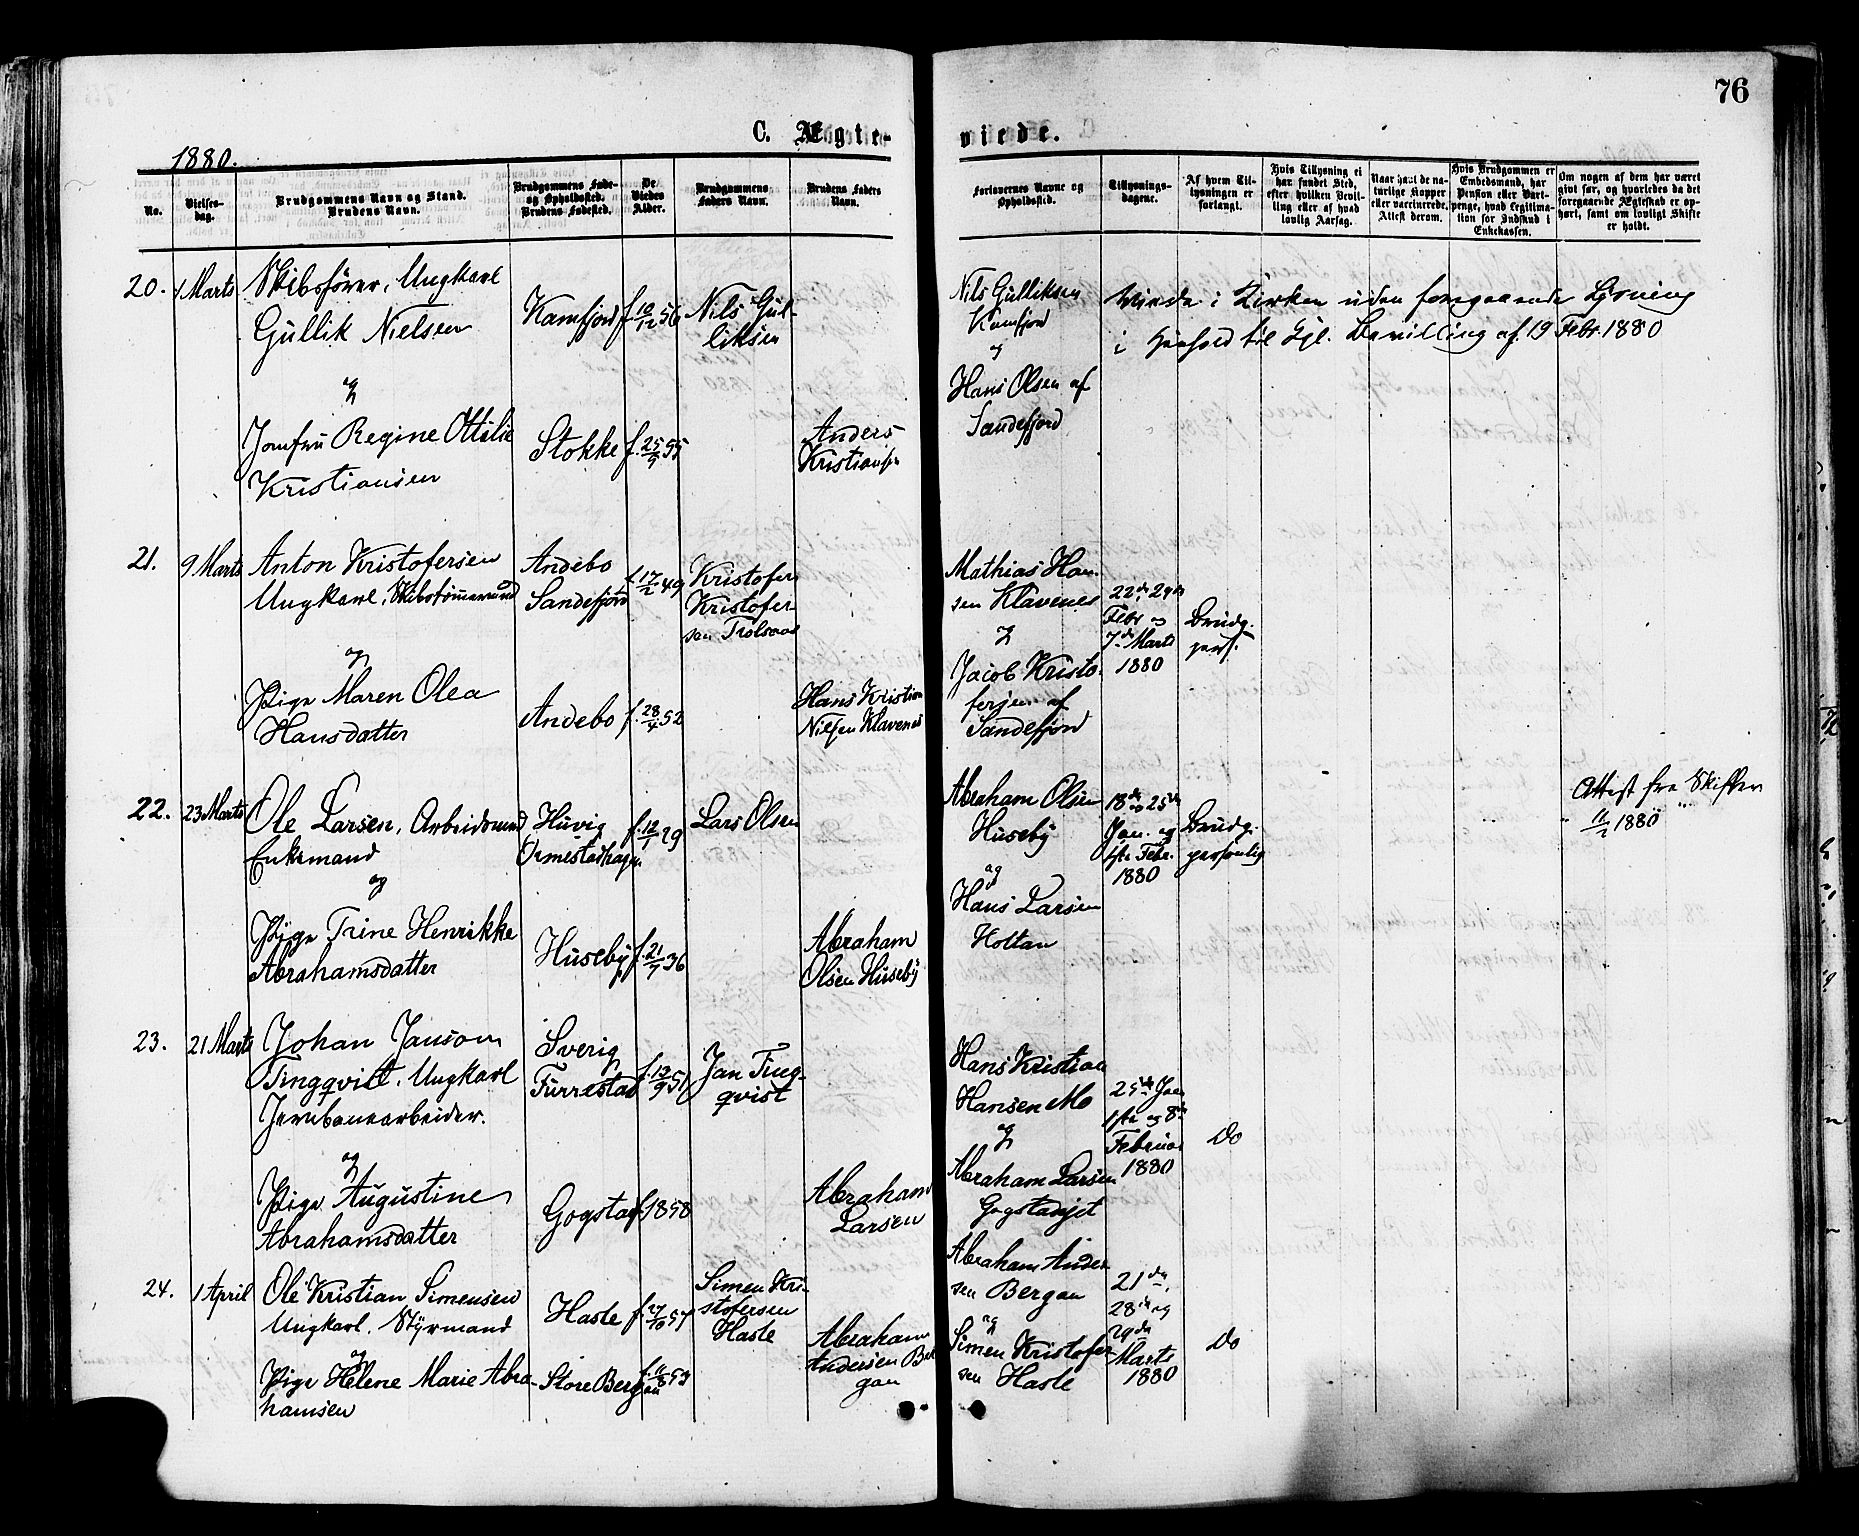 76
C. Ægte-
viede.
1880.
No.
Vielses-
dag.
Brudgommens Navn og Stand.
Brudens Navn.
Brudgommens Føde-
og Opholdssted.
Brudens Fødested.
De
Viedes
Alder.
Brudgommens
Faders Navn.
Brudens Faders
Navn.
Forlovernes Navne og
Opholdssted.
Tillysnings-
dagene.
Af hvem Til-
lysningen er
forlangt.
Hvis Tillysning ei
har fundet Sted,
efter hvilken Bevil-
ling eller af hvad
lovlig Aarsag.
Naar havt de na-
turlige Kopper
eller vaccinerede.
Attest derom.
Hvis Brudgommen er
Embedsmand, har
Pension eller Vart-
penge, hvad Legitima-
tion for Indskud i
Enkekassen.
Om nogen af dem har været
gift før, og hvorledes da det
foregaaende Ægteskab er op-
hørt, samt om lovligt Skifte
er holdt.
20.
1 Marts
Skibsfører, Ungkarl
Gullik Nielsen
og
Jomfru Regine Ottilie
Kristiansen
Kamfjord
Stokke
f. 10/12 56
f. 25/9 55
Nils Gul-
liksen
Anders
Kristiansen
Nils Gulliksen
Kamfjord
og
Hans Olsen af
Sandefjord
Viede i Kirken uden foregaaende Lysning
i Henhold til Kgl. Bevilling af 19 Febr. 1880
21.
9 Marts
Anton Kristofersen
Ungkarl, Skibstømmermand
og
Pige Maren Olea
Hansdatter
Andebo
Sandefjord
Andebo
f. 17/2 49
f. 28/4 52
Kristofer
Kristofer-
sen Trolsaas
Hans Kristian
Nilsen Klavenes
Mathias Han-
sen Klavenes
og
Jacob Kristo-
fersen af
Sandefjord
22de, 29de
Febr og
7de Marts
1880
Brudg.
pers.
22.
23 Marts
Ole Larsen, Arbeidsmand
Enkemand
og
Pige Trine Henrikke
Abrahamsdatter
Huvig
Ormestadhagen
Huseby
f. 12/1 29
f. 21/7 36
Lars Olsen
Abraham
Olsen Huseby
Abraham Olsen
Huseby
og
Hans Larsen
Holtan
18de og 25de
Jan. og
1ste Febr.
1880
Brudg.
personlig
Attest fra Skiften
11/2 1880
23.
21 Marts
Johan Janson
Tingqvist, Ungkarl
Jernbanearbeider.
og
Pige Augustine
Abrahamsdatter
Sverig
Furrestad
Gogstad
f. 12/9 51
f. 1858
Jan Ting-
qvist
Abraham
Larsen
Hans Kristian
Hansen Mo
og
Abraham Larsen
Gogstadejet
25de Jan
1ste og 8de
Februar
1880
Do
24.
1 April
Ole Kristian Simensen
Ungkarl, Styrmand
og
Pige Helene Marie Abra-
hamsen
Hasle
Store Bergan
f. 27/10 57
f. 11/8 53
Simen Kri-
stofersen
Hasle
Abraham
Andersen Ber
gan
Abraham Ander
sen Bergan
og
Simen Kristofer
sen Hasle
21de,
28de og
29de
Marts
1880
Do